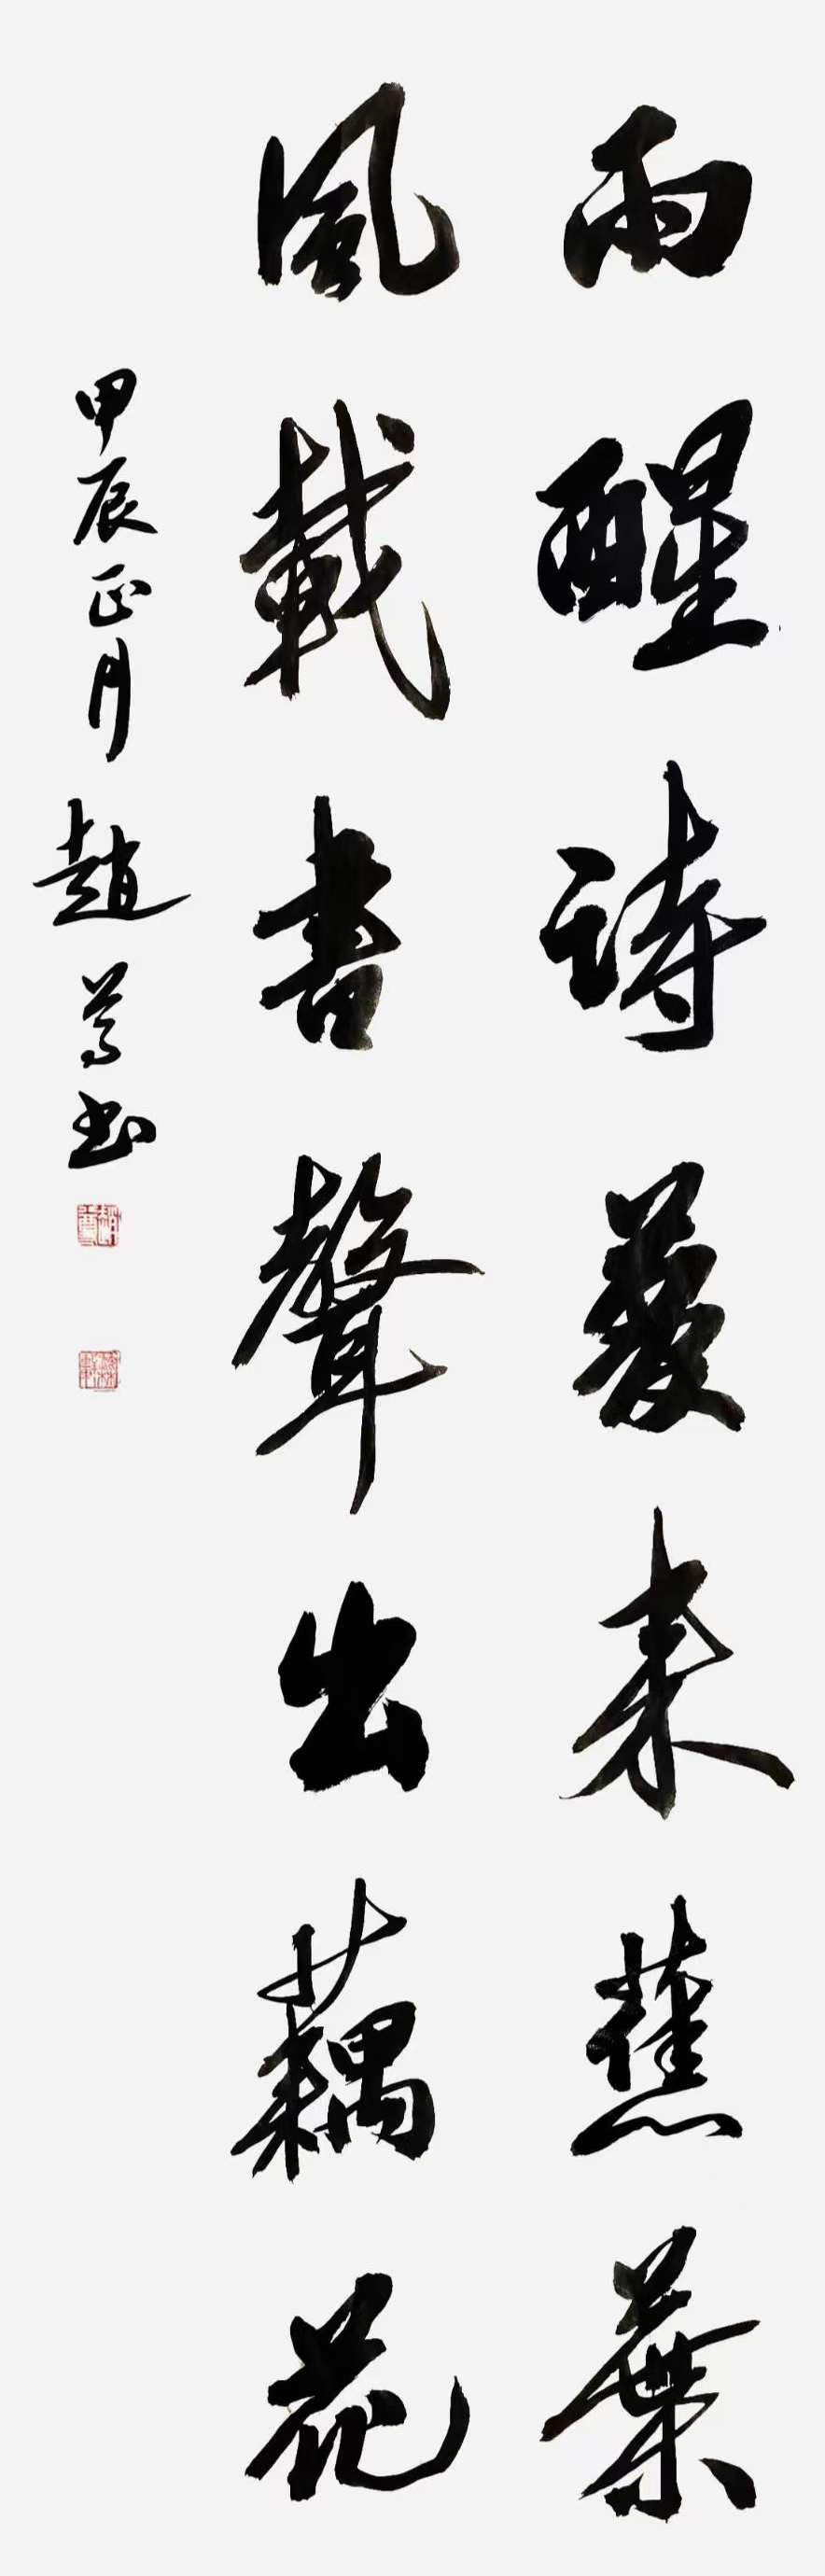 雨醒詩夢来蕉葉
風載書聲出藕花
甲辰正月趙书